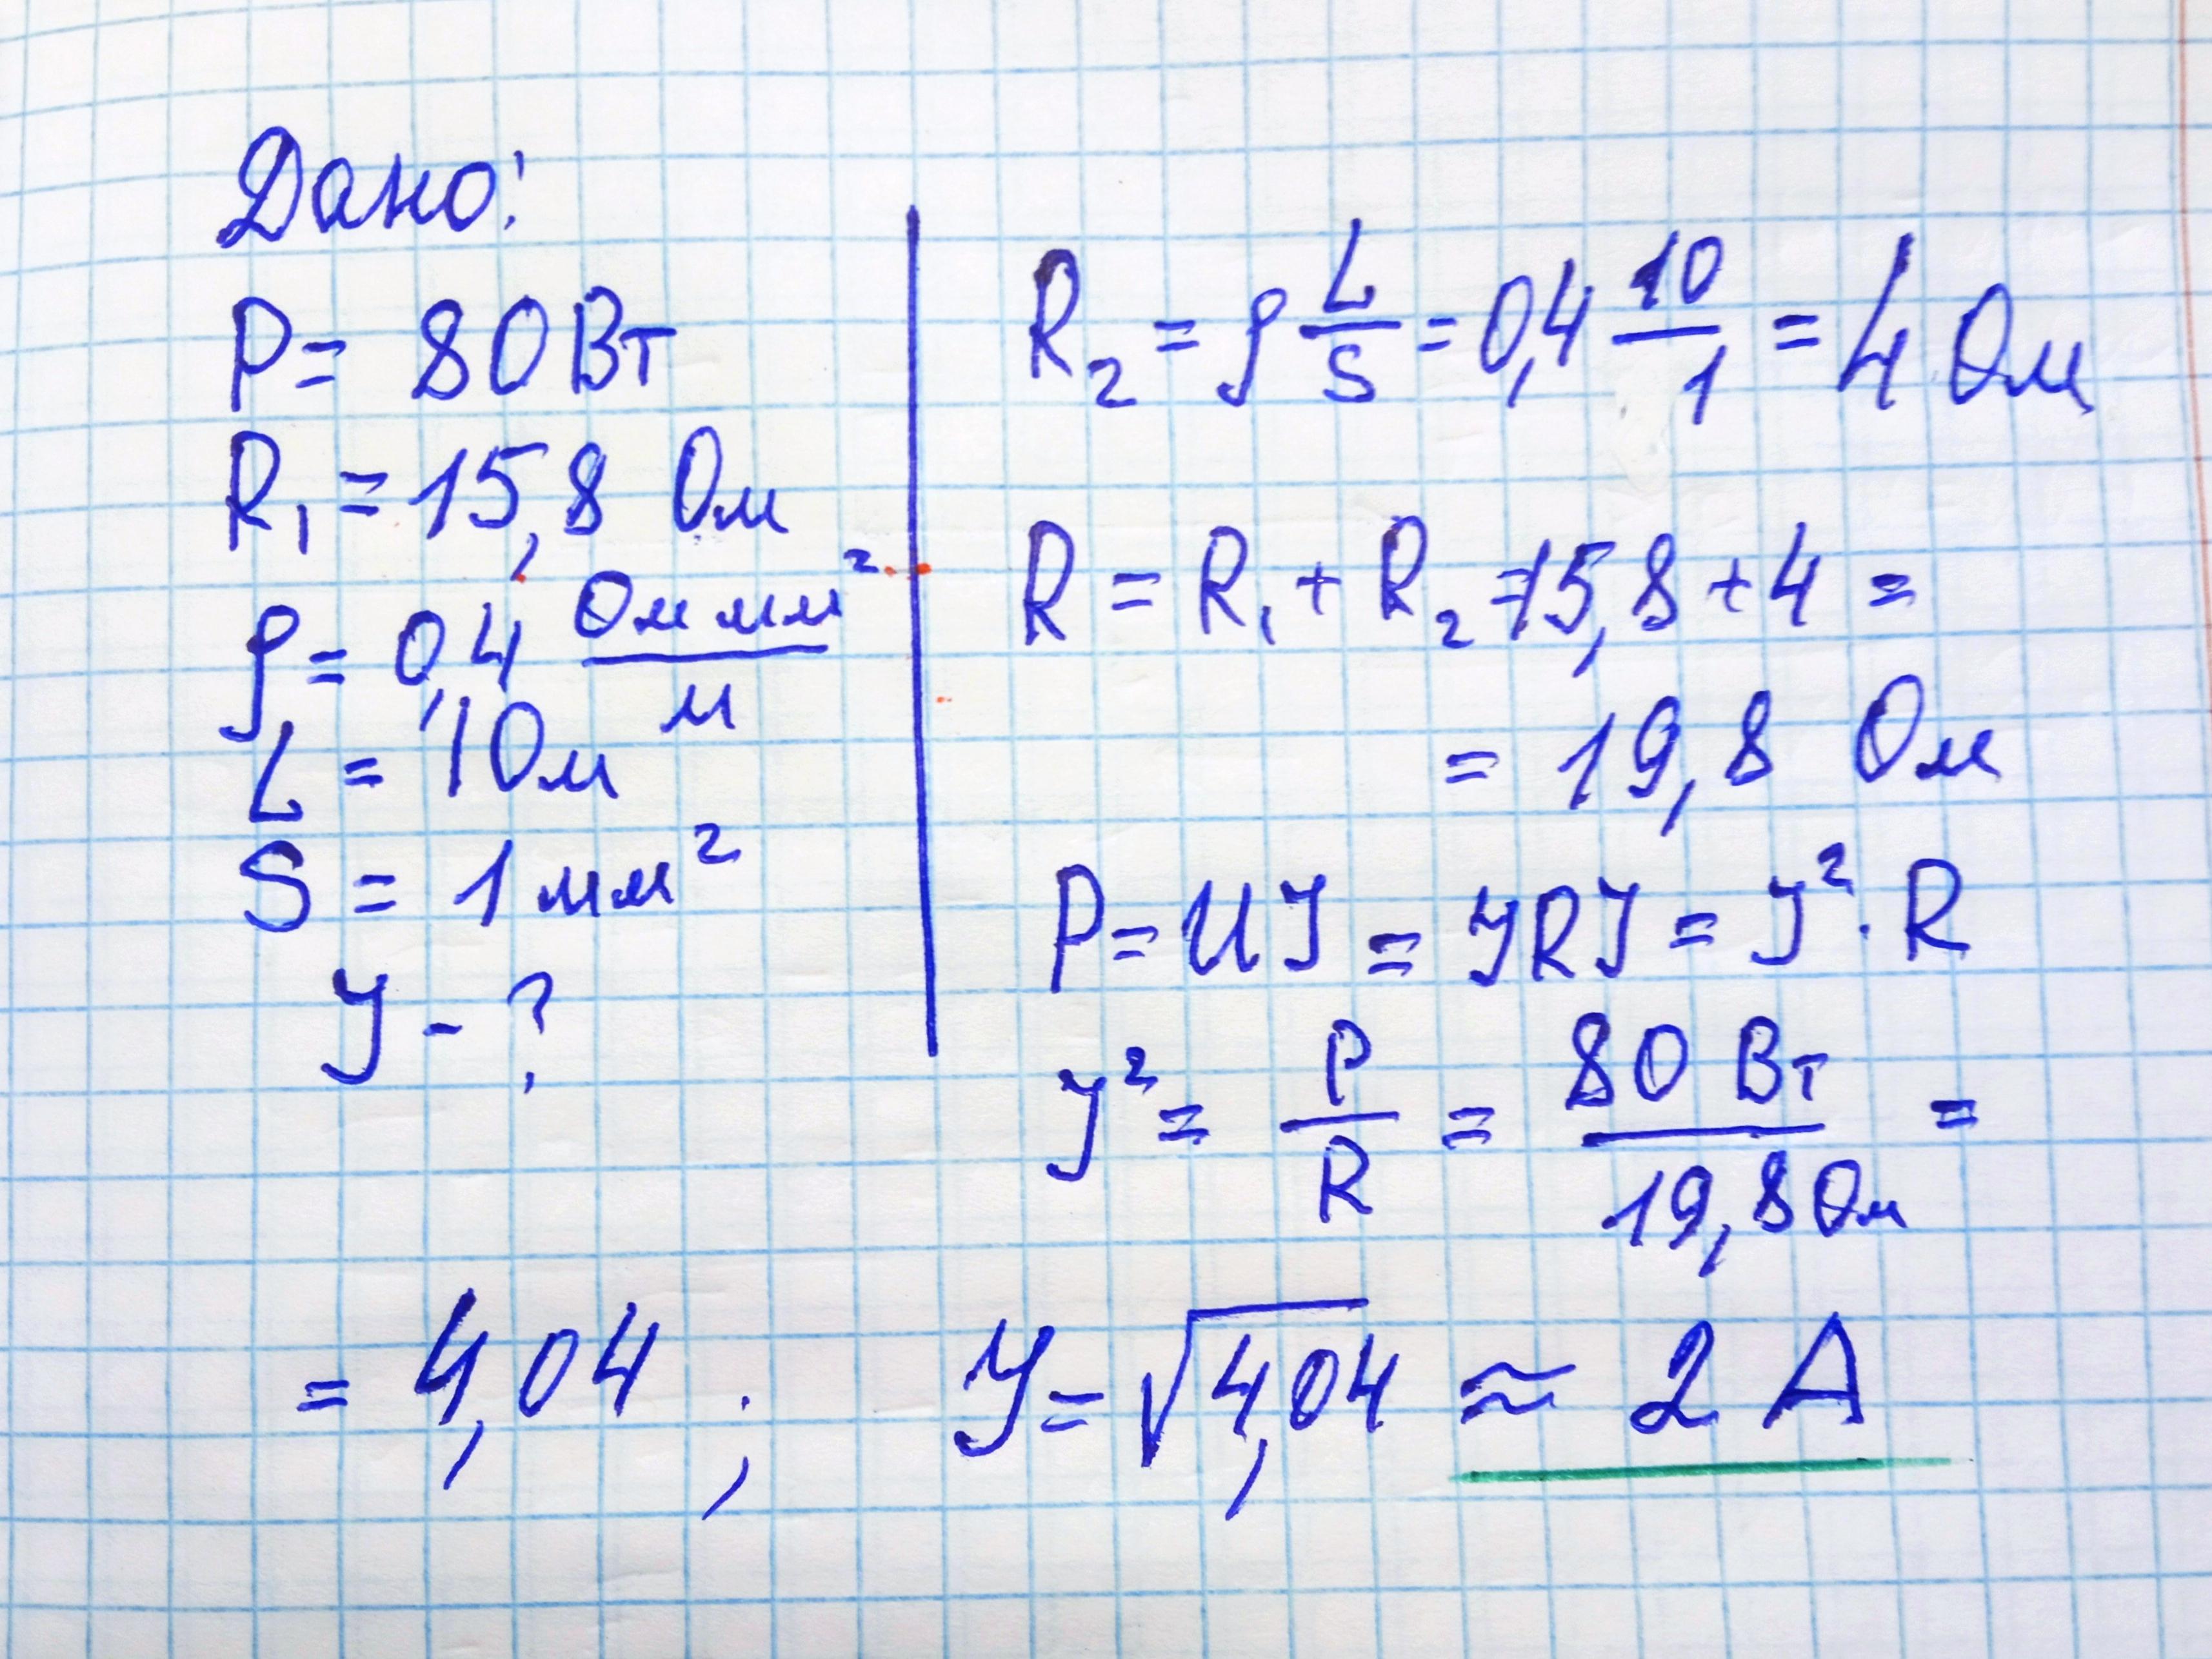 Дано:
P = 80 Вт
R₁ = 15,8 Ом
ρ = 0,4 Ом мм²/м
L = 10 м
S = 1 мм²
J - ?
R₂ = ρ L/S = 0,4 10/1 = 4 Ом
R = R₁ + R₂ = 15,8 + 4 =
= 19,8 Ом
P = UJ = JRJ = J² · R
J² = P/R = 80 Вт/19,8 Ом =
= 4,04 ; J = √4,04 ≈ 2 А